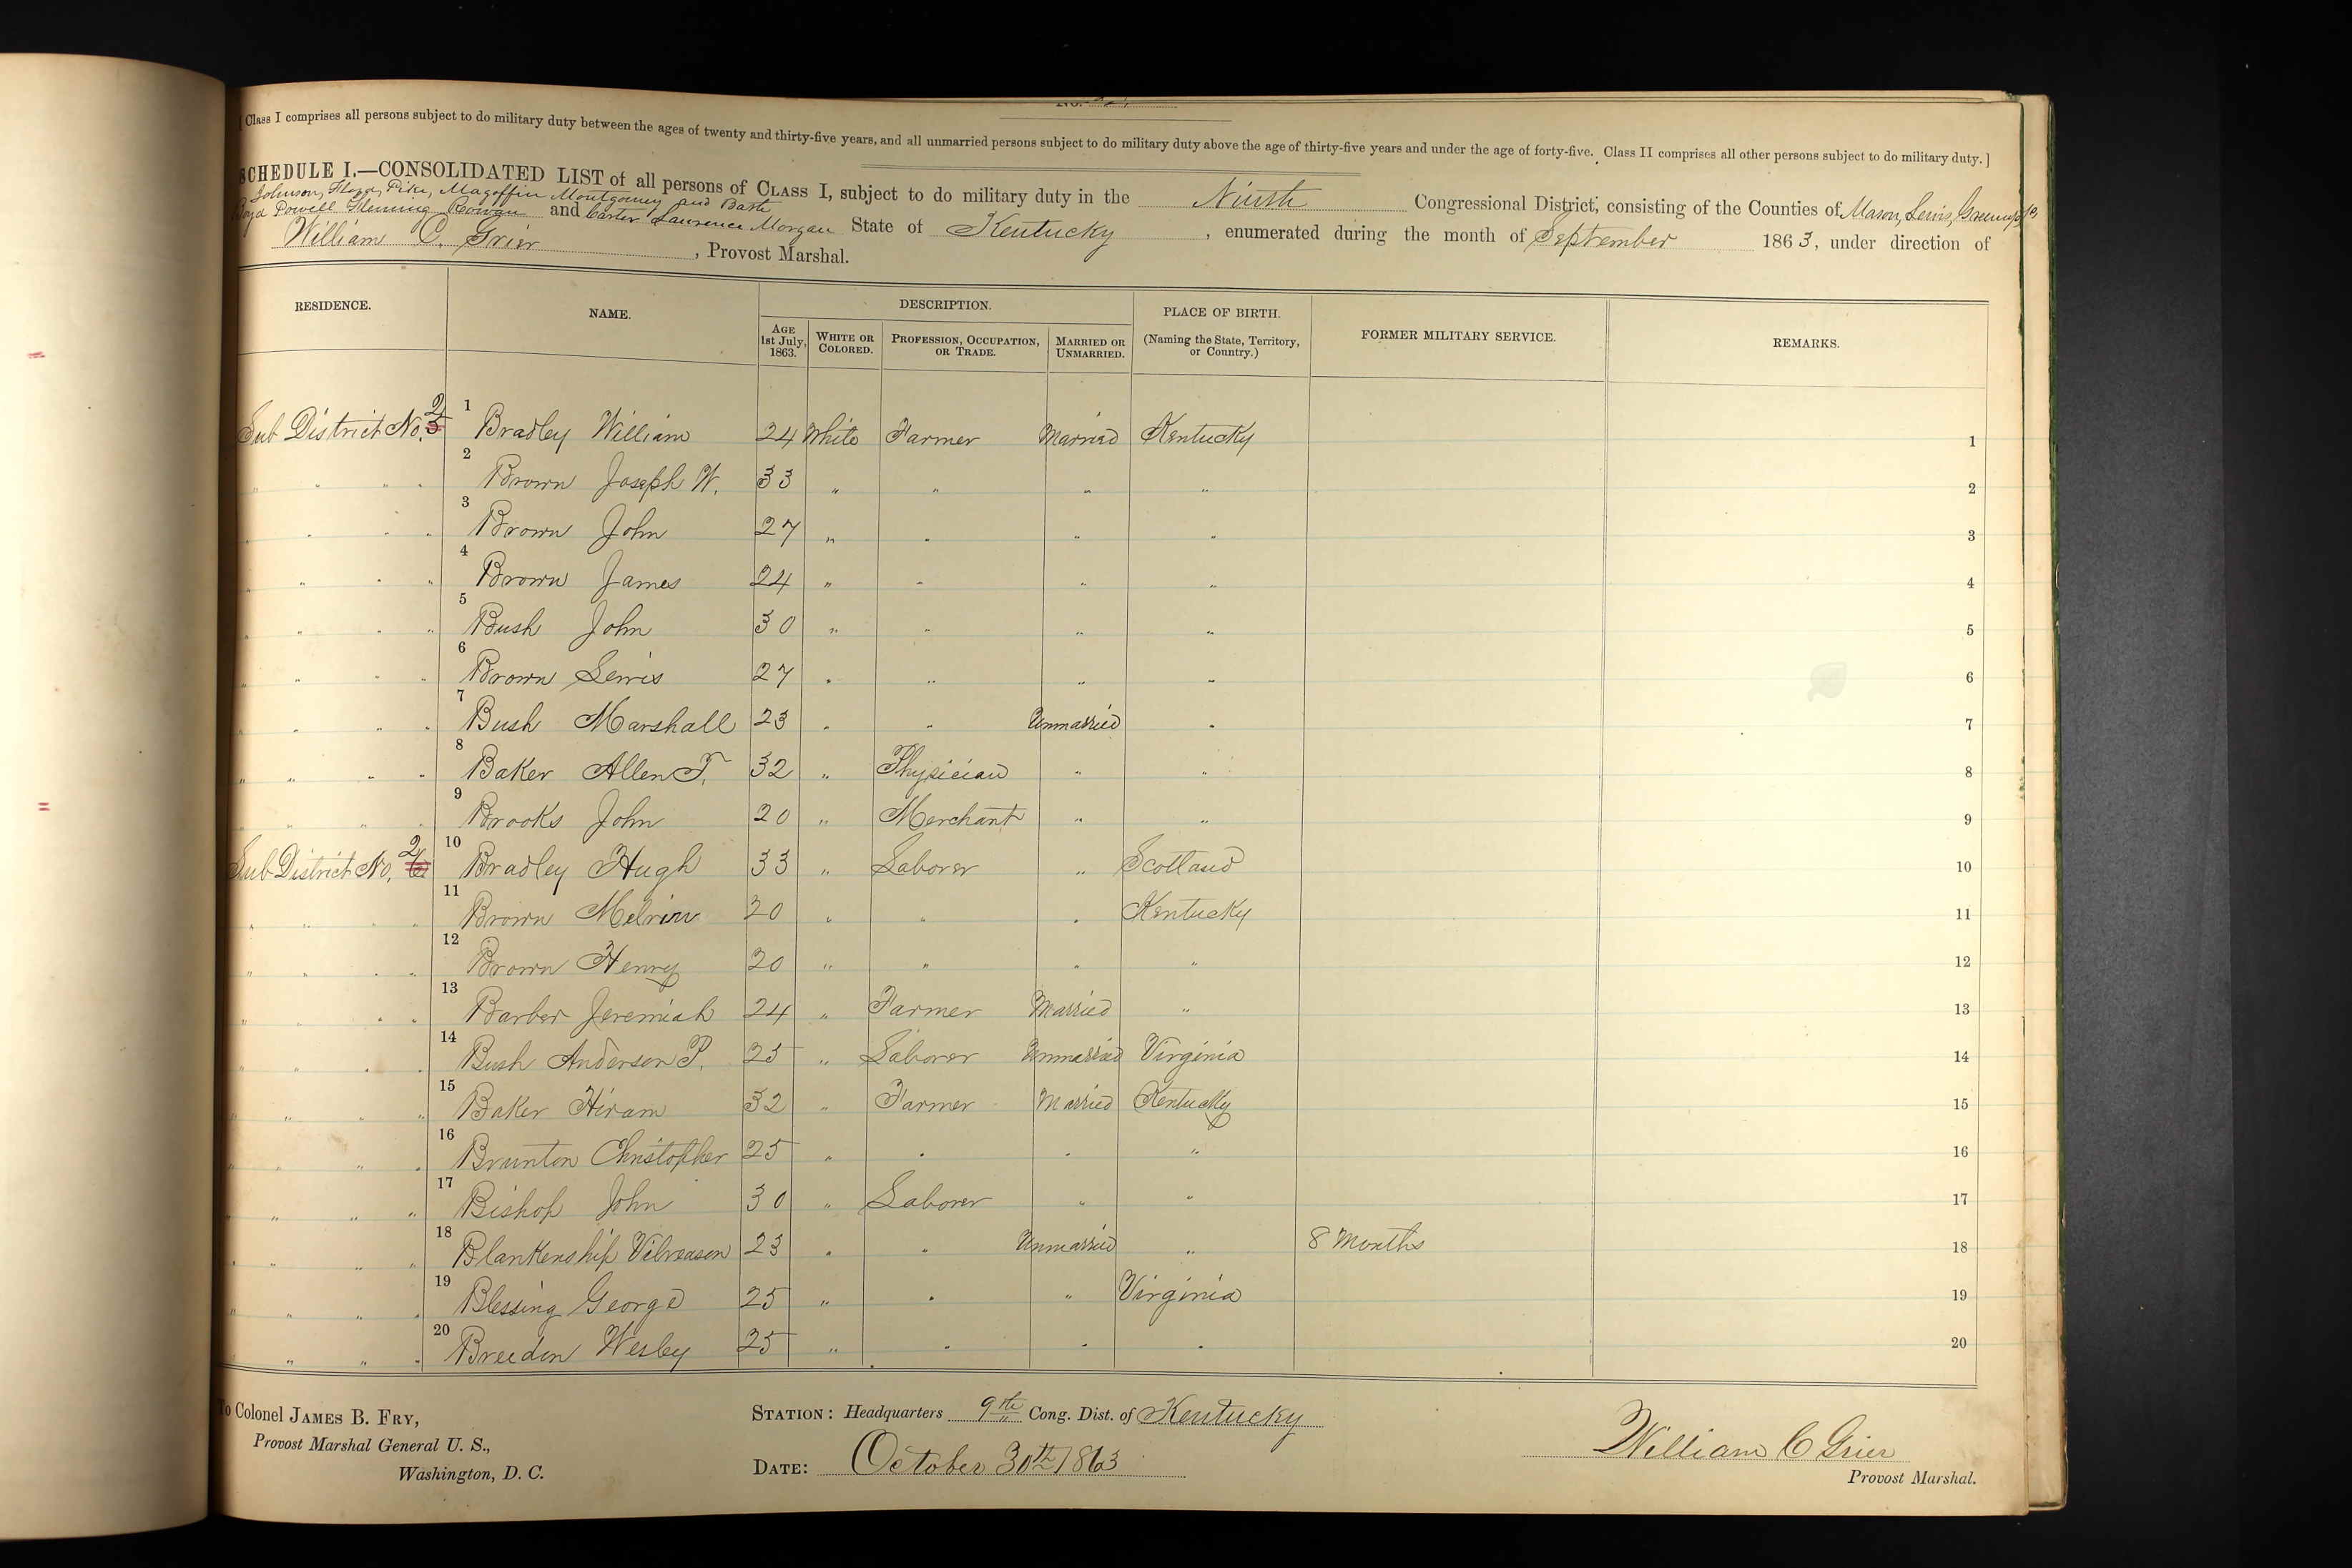 [Class I comprises all persons subject to do military duty between the ages of twenty and thirty-five years, and all unmarried persons subject to do military duty above the age of thirty-five years and under the age of forty-five. Class II comprises all other persons subject to do military duty.]
SCHEDULE I.—CONSOLIDATED LIST of all persons of CLASS I, subject to do military duty in the Ninth Congressional District, consisting of the Counties of Mason, Lewis, Greenup,
Johnson, Floyd, Pike, Magoffin Montgomery and Bath
Boyd Powell Fleming Rowan and Carter Lawrence Morgan State of Kentucky, enumerated during the month of September 1863, under direction of
William C. Grier, Provost Marshal.
RESIDENCE. NAME. DESCRIPTION. PLACE OF BIRTH. FORMER MILITARY SERVICE. REMARKS.
AGE 1st July, 1863. WHITE OR COLORED. PROFESSION, OCCUPATION, OR TRADE. MARRIED OR UNMARRIED. (Naming the State, Territory, or Country.)
Sub District No. 2 1 Bradley William 24 White Farmer Married Kentucky 1
" " " " 2 Brown Joseph W. 33 " " " " 2
" " " " 3 Brown John 27 " " " " 3
" " " " 4 Brown James 24 " " " " 4
" " " " 5 Bush John 30 " " " " 5
" " " " 6 Brown Lewis 27 " " " " 6
" " " " 7 Bush Marshall 23 " " Unmarried " 7
" " " " 8 Baker Allen T. 32 " Physician " " 8
" " " " 9 Brooks John 20 " Merchant " " 9
Sub District No. 2 10 Bradley Hugh 33 " Laborer " Scotland 10
" " " " 11 Brown Melvin 20 " " " Kentucky 11
" " " " 12 Brown Henry 20 " " " " 12
" " " " 13 Barber Jeremiah 24 " Farmer Married " 13
" " " " 14 Bush Anderson P. 25 " Laborer Unmarried Virginia 14
" " " " 15 Baker Hiram 32 " Farmer Married Kentucky 15
" " " " 16 Brunton Christopher 25 " " " " 16
" " " " 17 Bishop John 30 " Laborer " " 17
" " " " 18 Blankenship 23 " " Unmarried " 8 Months 18
" " " " 19 Blessing George 25 " " " Virginia 19
" " " " 20 Breeden Wesley 25 " " " " 20
To Colonel JAMES B. FRY,
Provost Marshal General U. S.,
Washington, D. C.
STATION: Headquarters 9th Cong. Dist. of Kentucky
DATE: October 30th 1863
William C Grier
Provost Marshal.